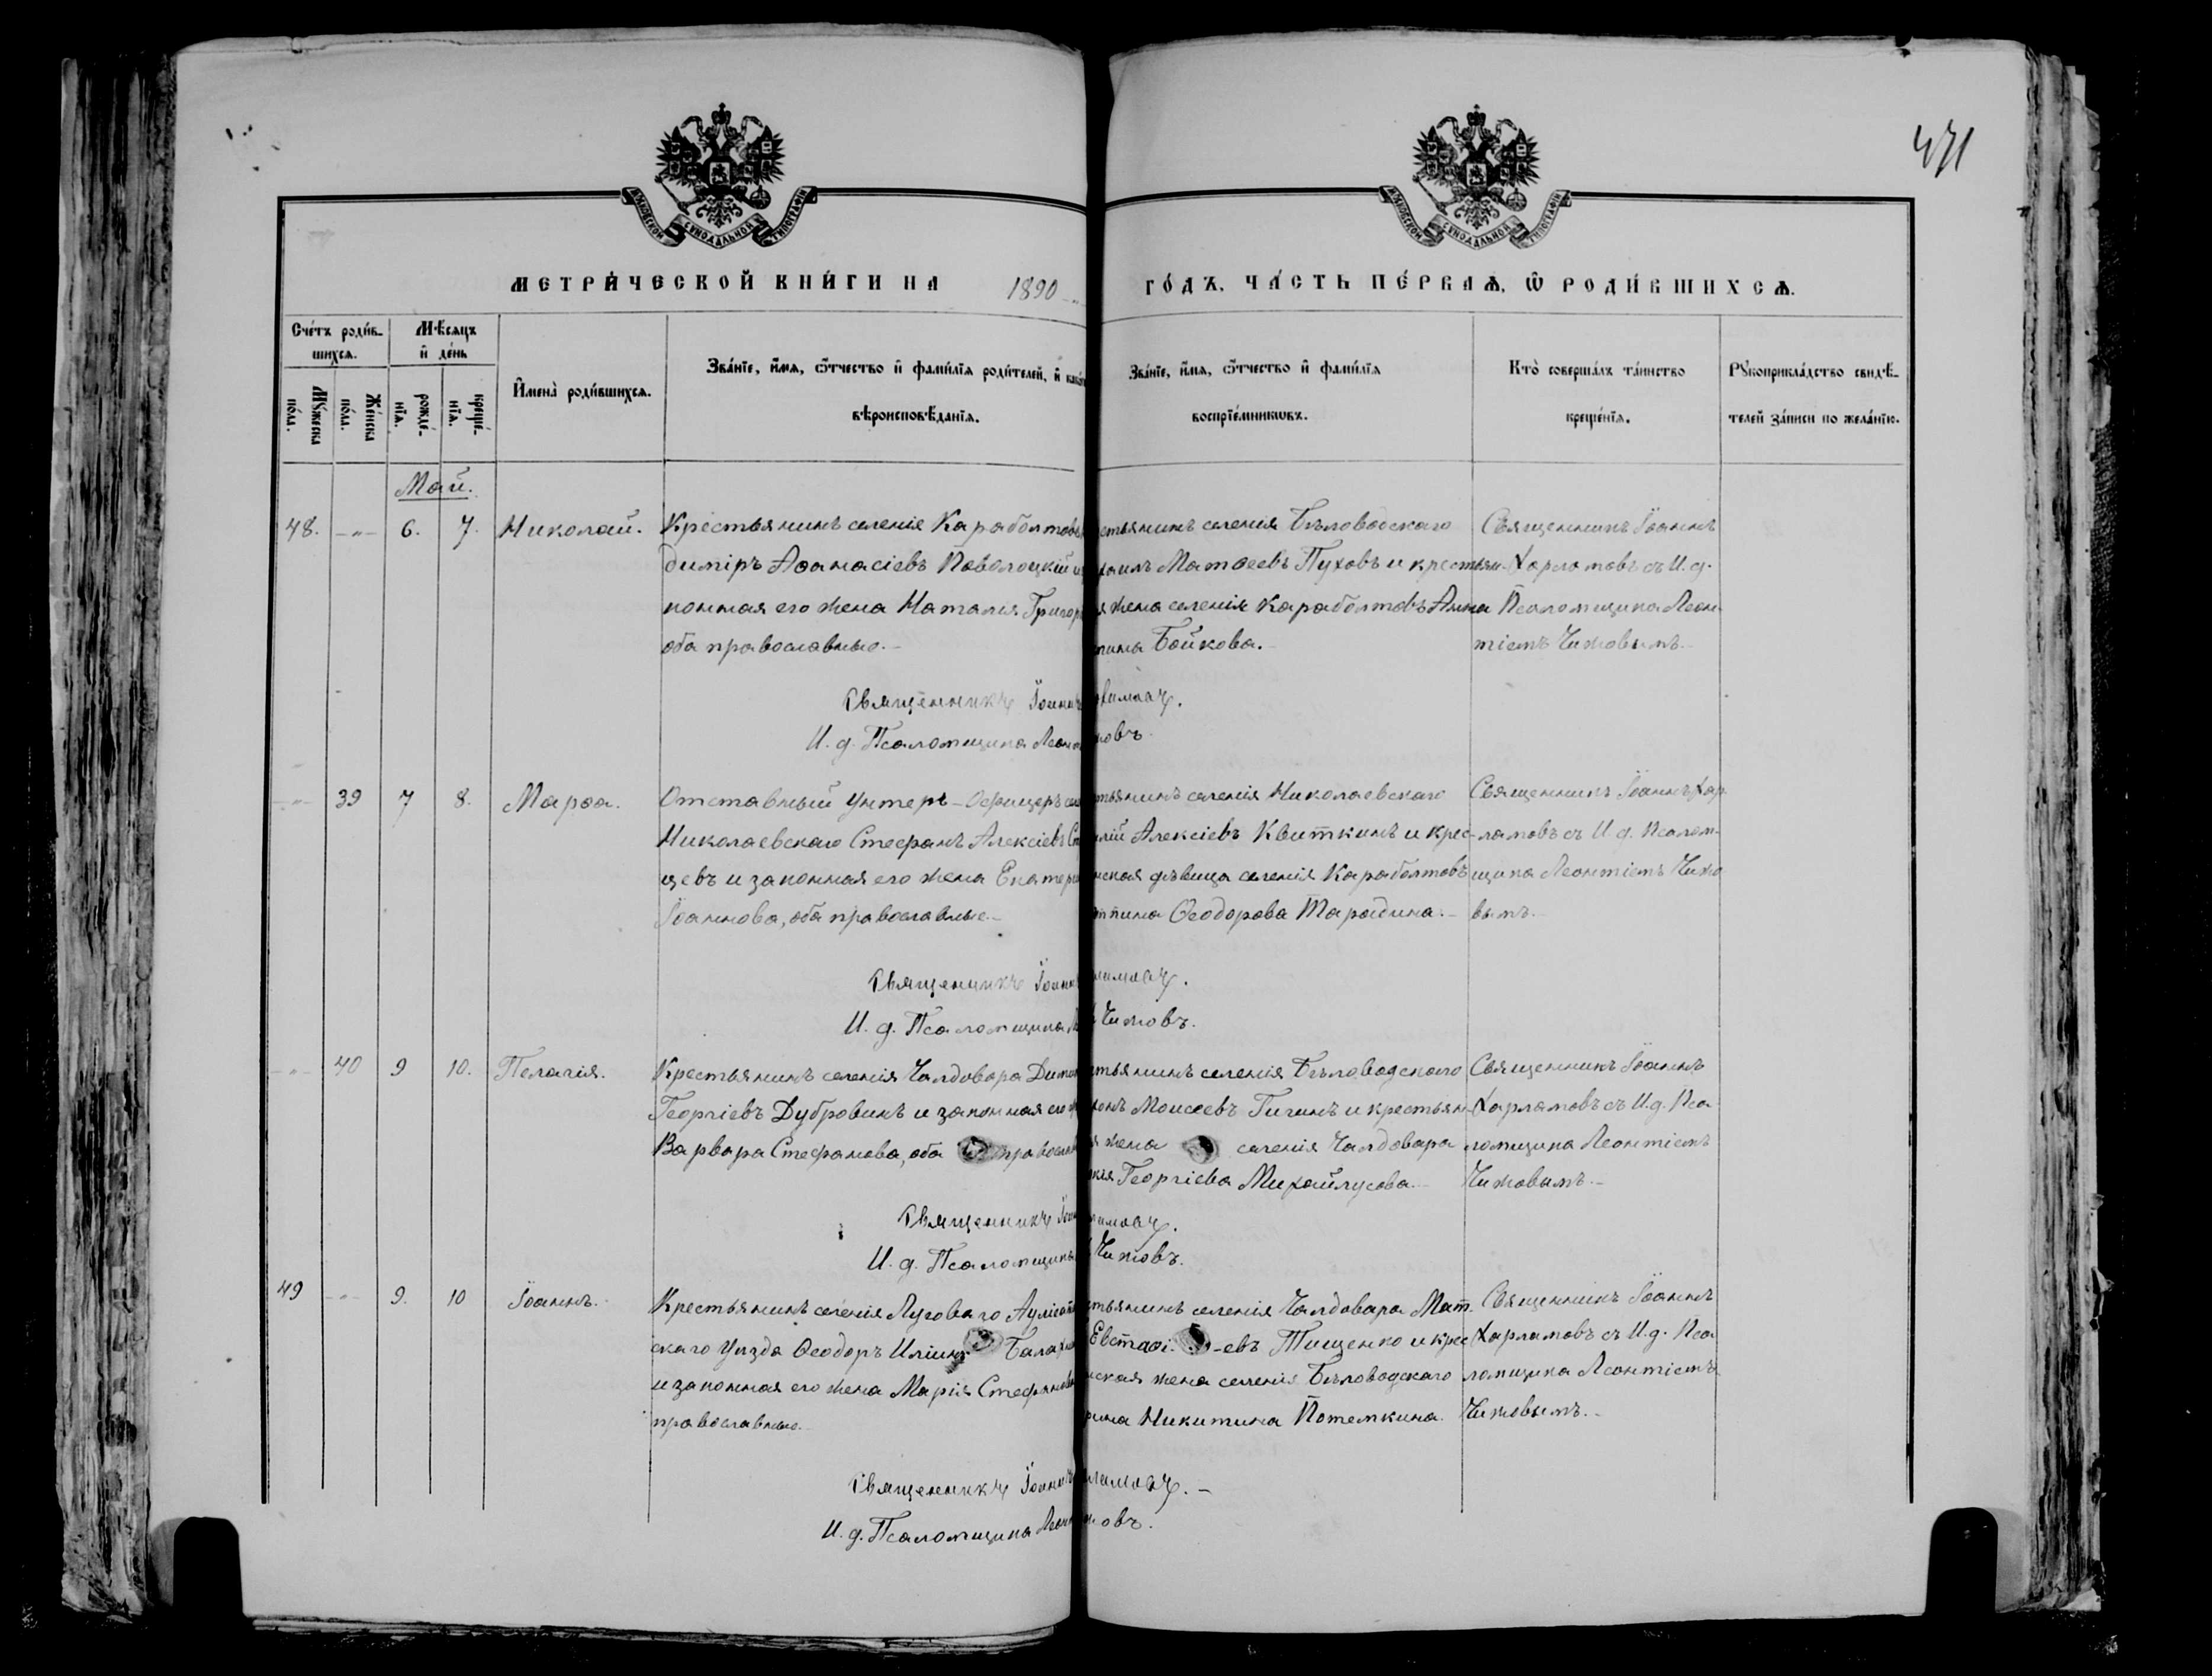 471
МОСКОВСКОЙ СѴНОДАЛЬНОЙ ТИПОГРАФІИ
МОСКОВСКОЙ СѴНОДАЛЬНОЙ ТИПОГРАФІИ
МЕТРИ́ЧЕСКОЙ КНИ́ГИ НА 1890 ГО́ДЪ, ЧА́СТЬ ПЕ́РВАѦ, Ѿ РОДИ́ВШИХСѦ.
Сче́тъ роди́в-
шихсѧ.
Мѣ́сѧцъ
и҆ де́нь
Мꙋ́жеска
по́ла.
Же́нска
по́ла.
рожде́-
нїѧ.
креще́-
нїѧ.
И҆мена̀ роди́вшихсѧ.
Зва́нїе, и҆́мѧ, ѻ҆́тчество и҆ фами́лїѧ роди́телей, и҆
вѣроисповѣ́данїѧ.
Зва́нїе, и҆́мѧ, ѻ҆́тчество и҆ фами́лїѧ
воспрїе́мникѡвъ.
Кто̀ соверша́лъ та́инство
креще́нїѧ.
Рꙋкоприкла́дство свидѣ́-
телей за́писи по жела́нїю.
Май.
48. -"- 6. 7. Николай.
Крестьянинъ селенія Караболтовъ
диміръ Аѳанасіевъ Поволоцкій и
конная его жена Наталія Григор
оба православные.-
стьянинъ селенія Бѣловодскаго
хаилъ Матѳеевъ Пуховъ и крестьян-
я жена селенія Караболтовъ Анна
тина Бойкова.-
Священникъ Іоаннъ
Харламовъ съ И.д.
Псаломщика Леон
тіемъ Чижовымъ.-
Священникъ Іоаннъ ламовъ.
И.д. Псаломщика Леон жовъ.
-"- 39 7 8. Марѳа.
Отставный Унтеръ-Офицеръ сел
Николаевскаго Стефанъ Алексіевъ Ст
цевъ и законная его жена Екатери
Іоаннова, оба православные.-
тьянинъ селенія Николаевскаго
лій Алексіевъ Квиткинъ и крес-
нская дѣвица селенія Караболтовъ
тина Ѳеодорова Тарадина.-
Священникъ Іоаннъ Хар
ламовъ съ И.д. Псалом-
щика Леонтіемъ Чижо
вымъ.-
Священникъ Іоанн ламовъ.
И.д. Псаломщика Л Чижовъ.
-"- 40 9 10. Пелагія.
Крестьянинъ селенія Чалдовара Дими
Георгіевъ Дубровинъ и законная его ж
Варвара Стефанова, оба православн
тьянинъ селенія Бѣловодскаго
Моисеевъ Гигинъ и крестьян-
я жена селенія Чалдовара
кія Георгіева Михайлусова.-
Священникъ Іоаннъ
Харламовъ съ И.д. Пса
ломщика Леонтіемъ
Чижовымъ.-
Священникъ Іоан ламовъ.
И.д. Псаломщика Чижовъ.
49 -"- 9. 10 Іоаннъ.-
Крестьянинъ селенія Луговаго Ауліеат
скаго Уѣзда Ѳеодоръ Иліинъ
и законная его жена Марія Стефанова
православные.-
стьянинъ селенія Чалдовара Мат-
Евстаѳі-евъ Тищенко и крес
нская жена селенія Бѣловодскаго
рина Никитина Потемкина.
Священникъ Іоаннъ
Харламовъ съ И.д. Пса
ломщика Леонтіемъ
Чижовымъ.-
Священникъ Іоаннъ ламовъ.-
И.д. Псаломщика Леон овъ.